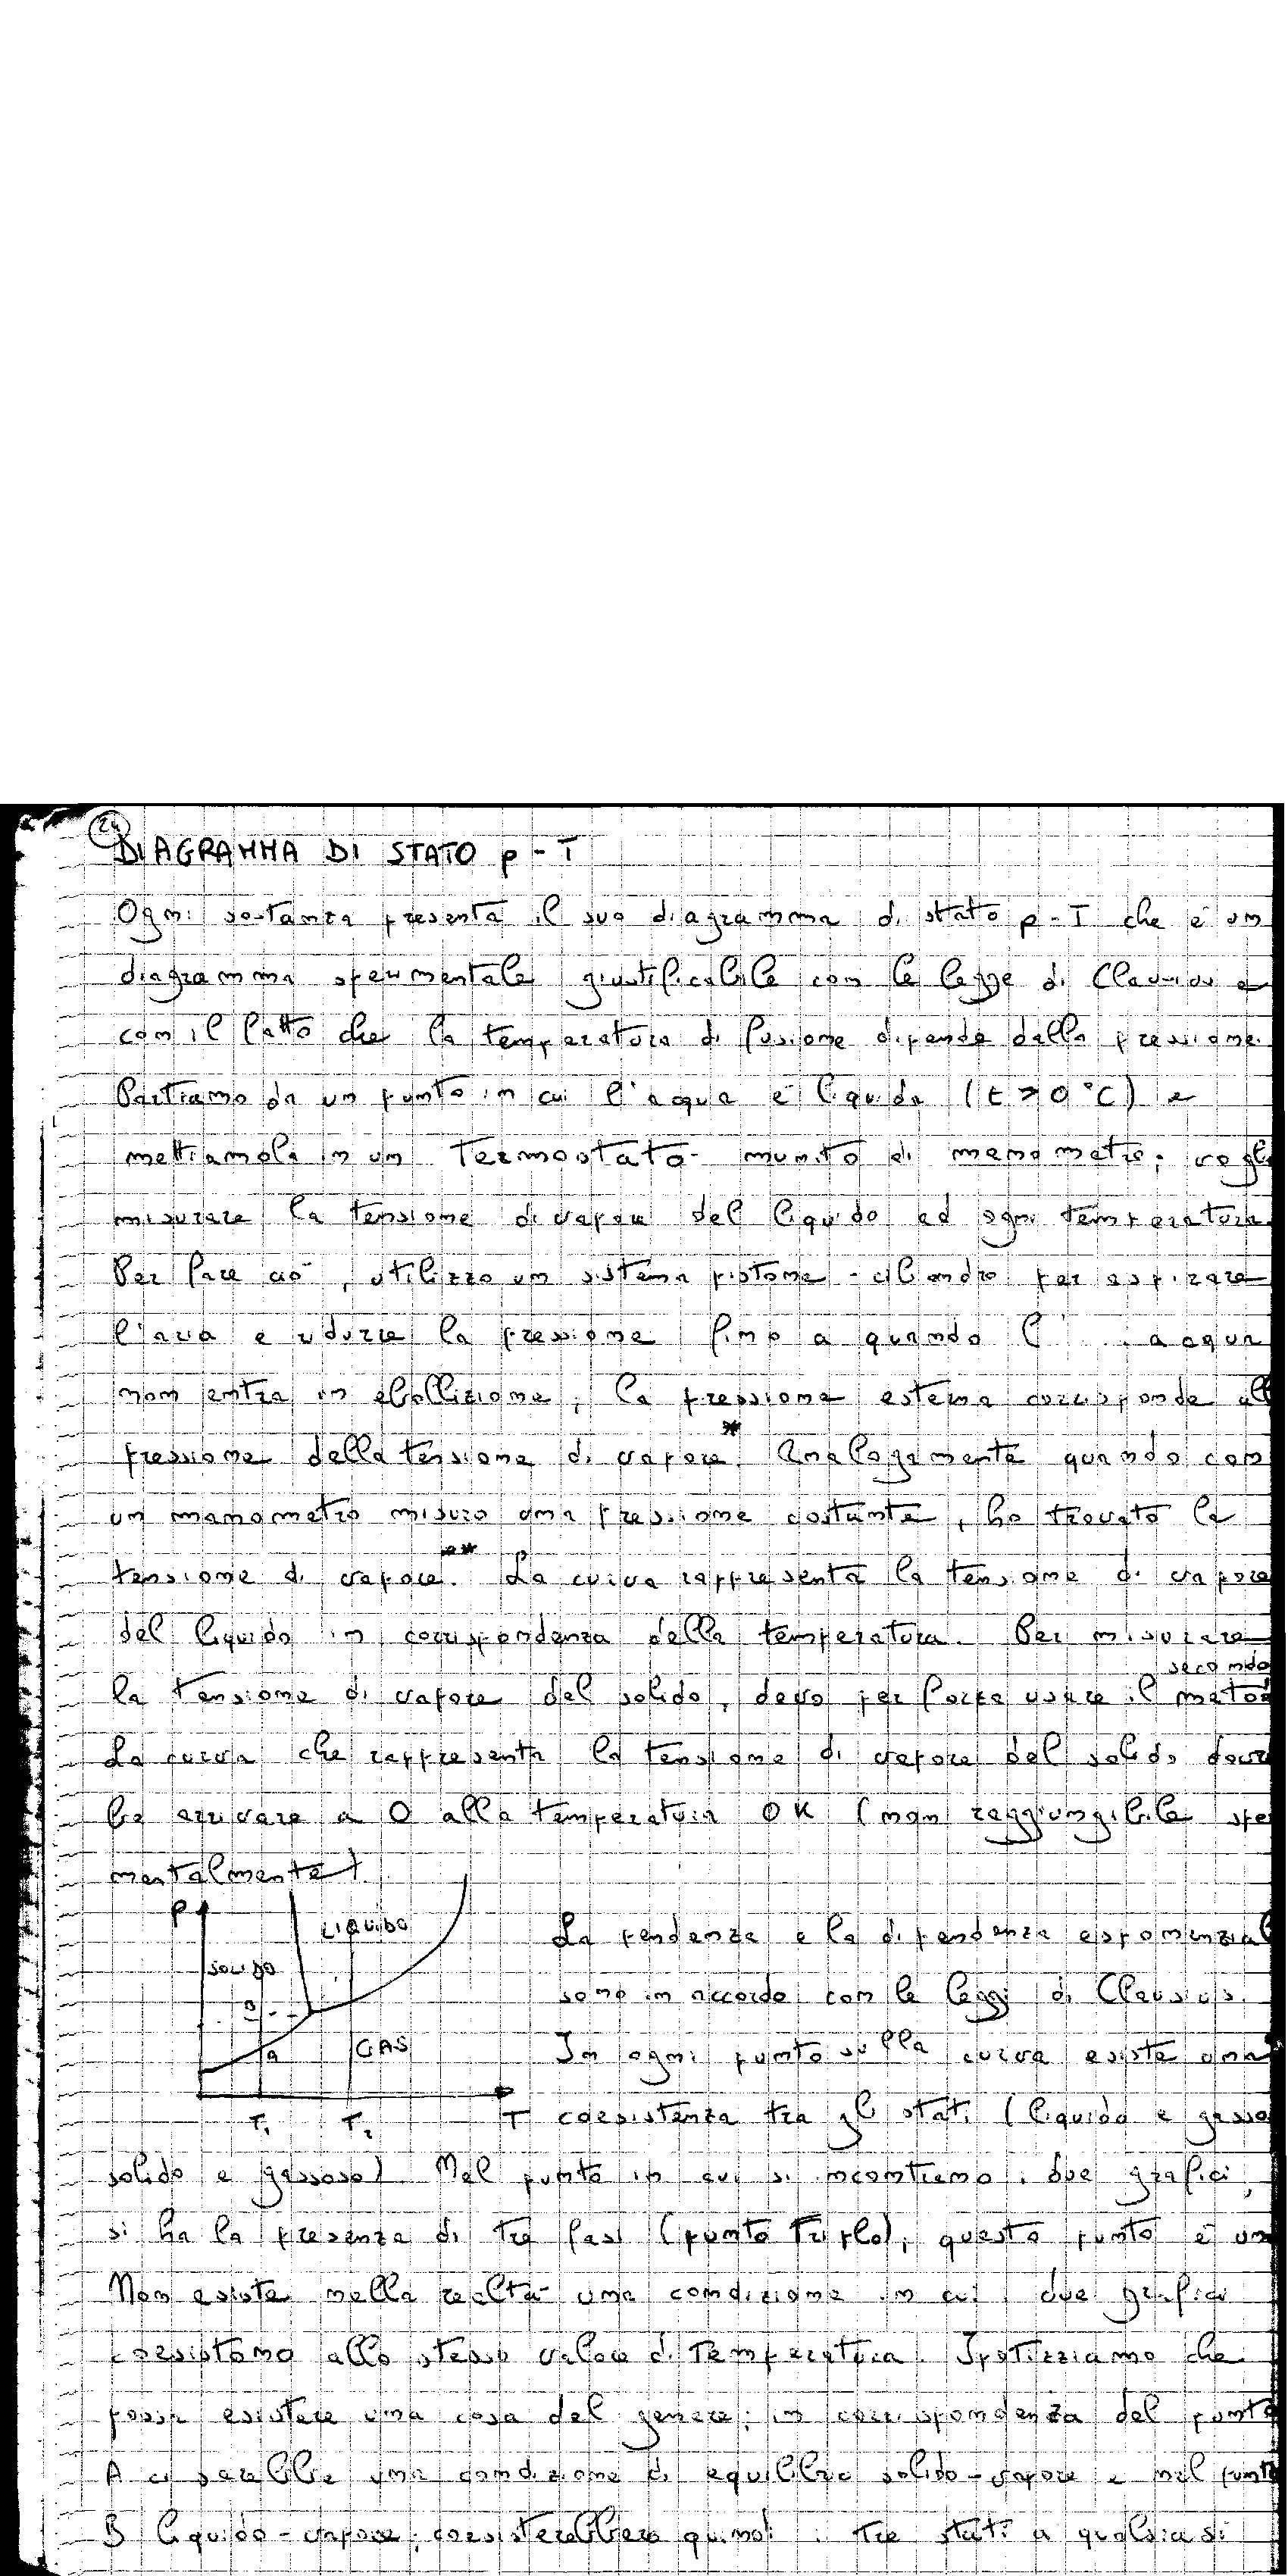 24
DIAGRAMMA DI STATO p-T
Ogni sostanza presenta il suo diagramma di stato p-T che è un
diagramma sperimentale giustificabile con le legge di Clausius e
con il fatto che la temperatura di fusione dipende dalla pressione.
Partiamo da un punto in cui l'acqua è liquida (t > 0 °C) e
mettiamola in un termostato munito di manometro; vogl
misurare la tensione di vapore del liquido ad ogni temperatura.
Per fare ciò, utilizzo un sistema pistone-cilindro per aspirare
l'aria e ridurre la pressione fino a quando l' acqua
non entra in ebollizione; la pressione esterna corrisponde all
pressione della tensione di vapore.* Analogamente quando con
un manometro misuro una pressione costante, ho trovato la
tensione di vapore.** La curva rappresenta la tensione di vapore
del liquido in corrispondenza della temperatura. Per misurare
la tensione di vapore del solido, devo per forza usare il secondo metod
La curva che rappresenta la tensione di vapore del solido dovre
be arrivare a 0 alla temperatura 0K (non raggiungibile spe
mentalmente).
P
LIQUIDO
SOLIDO
B
A
GAS
T1 T2 T
La pendenza e la dipendenza esponenzial
sono in accordo con le leggi di Clausius.
In ogni punto sulla curva esiste una
coesistenza tra gli stati (liquido e gasso
solido e gassoso). Nel punto in cui si incontrano i due grafici,
si ha la presenza di tre fasi (punto triplo); questo punto è un
Non esiste nella realtà una condizione in cui i due grafici
coesistono allo stesso valore di temperatura. Ipotizziamo che
possa esistere una cosa del genere; in corrispondenza del punto
A ci sarebbe una condizione di equilibrio solido-vapore e nel punto
B liquido-vapore; coesisterebbero quindi i tre stati a qualsiasi